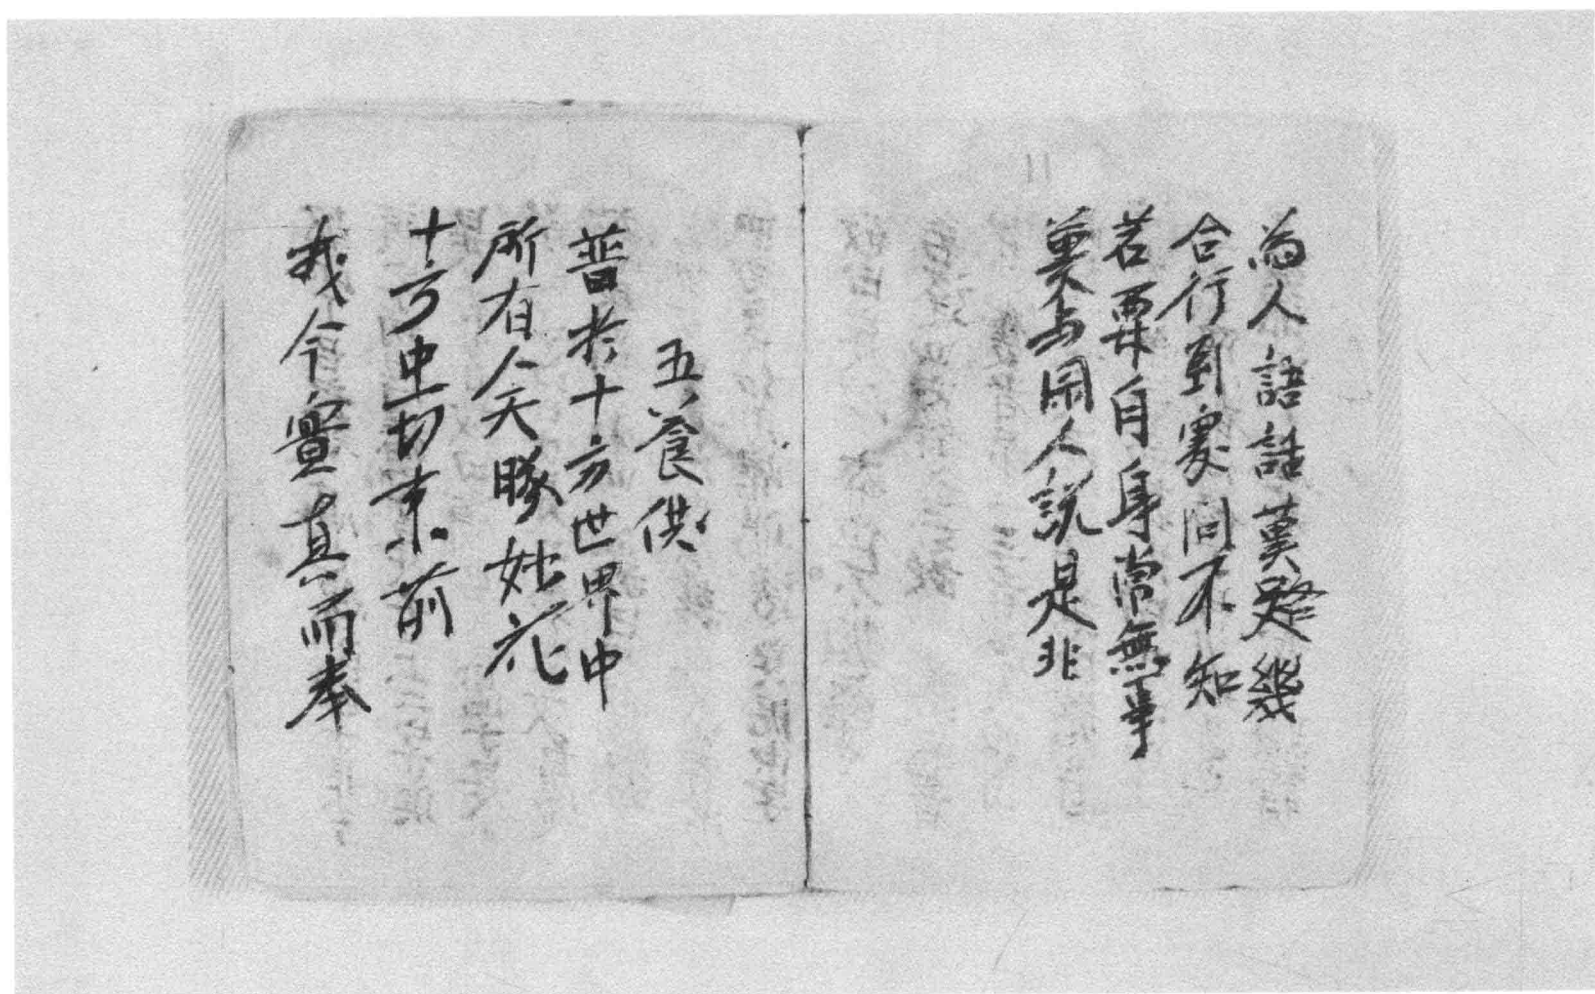 為人語話莫疑幾
合行到家问不知
若要自身常無事
莫与閑人說是非
五食供
普於十方世界中
所有人天勝妙花
十方忠切来前
我今實真而奉